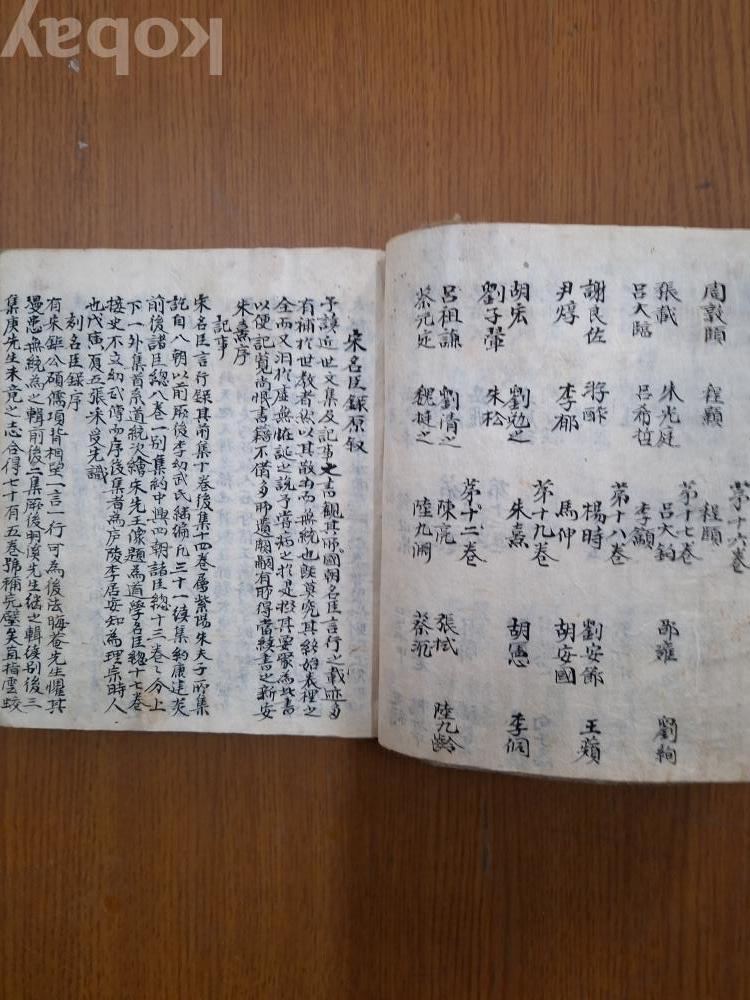 kobay
第十六卷
周敦頤 程顥 程頤
第十七卷
張載 朱光庭 呂大鈞 邵雍 劉絢
呂大臨 呂希哲 李籲
第十八卷
謝良佐 楊時 劉安節 王蘋
尹焞 李郁 馬伸 胡安國
第十九卷
胡宏 劉勉之 朱熹 胡憲 李侗
劉子翬 朱松
第十二卷
呂祖謙 劉清之 陳亮 張栻 陸九齡
蔡元定 魏挺之 陸九淵 蔡沉
宋名臣錄原叙
予讀近世文集及記事之書觀其所國朝名臣言行之載迹多
有補於世教者然以其散出而無統也旣莫究其終始表裡之
全而又汩於虛無怪誕之說予嘗病之於是掇其要聚為此書
以便記覽尚恨書籍不備多所遺闕嗣有所得當續書之新安
朱熹序
記事
宋名臣言行錄其前集十卷後集十四卷屬紫陽朱夫子所集
訖自八朝以前厥後李幼武氏續編凡三十一續集約康建英
前後諸臣總八卷一別集約中興四朝諸臣總十三卷之分上
下一外集首系道統次繪朱先王像題為道學名臣總十七卷
按史不立幼武傳而序後集者為庐陵李居安知為理宗時人
也戊寅夏五張采受先識
刻名臣錄序
有宋鉅公碩儒項背相望一言一行可為後法晦菴先生懼其
漫患無統為之輯前後二集厥後羽溪先生继之輯續別後三
集庚先生未竟之志合得七十有五卷號補完璧矣自指雲蛟